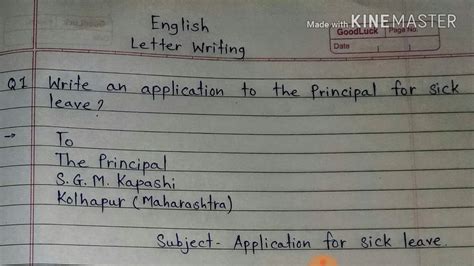 English
Made with KINEMASTER
Letter Writing
GoodLuck Page No.
Date
Q1 Write an application to the Principal for sick
leave?
→ To
The Principal
S. G. M. Kapashi
Kolhapur (Maharashtra)
Subject - Application for sick leave.